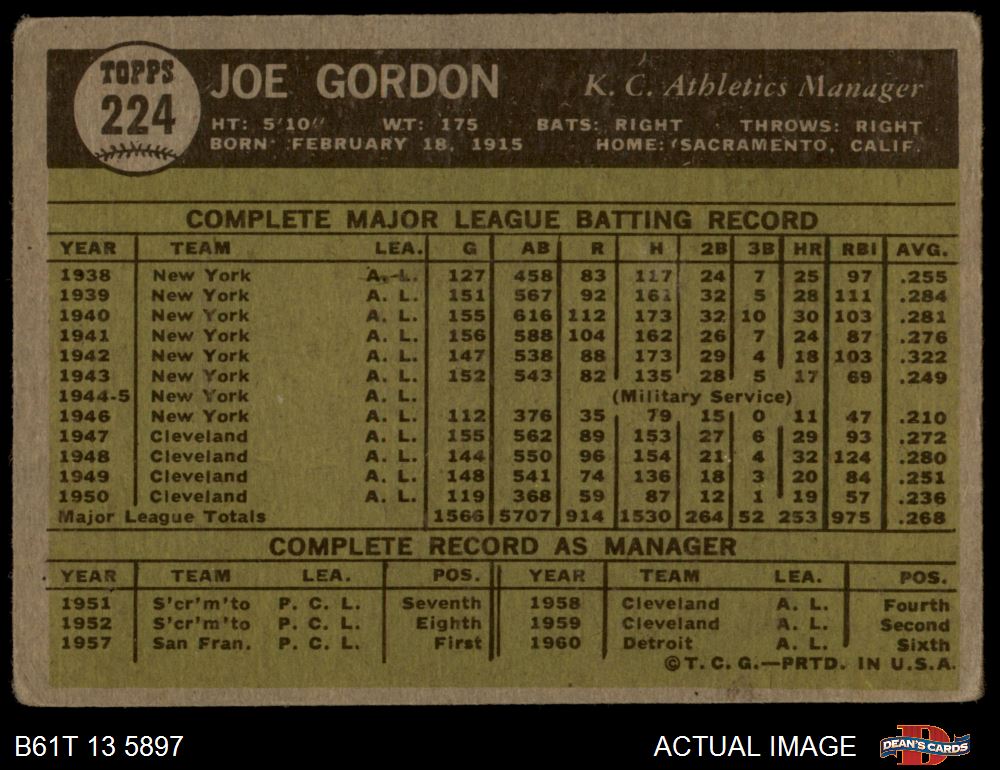 TOPPS
224
JOE GORDON K. C. Athletics Manager
HT: 5'10" WT: 175 BATS: RIGHT THROWS: RIGHT
BORN: FEBRUARY 18, 1915 HOME: SACRAMENTO, CALIF.
COMPLETE MAJOR LEAGUE BATTING RECORD
YEAR TEAM LEA. G AB R H 2B 3B HR RBI AVG.
1938 New York A. L. 127 458 83 117 24 7 25 97 .255
1939 New York A. L. 151 567 92 161 32 5 28 111 .284
1940 New York A. L. 155 616 112 173 32 10 30 103 .281
1941 New York A. L. 156 588 104 162 26 7 24 87 .276
1942 New York A. L. 147 538 88 173 29 4 18 103 .322
1943 New York A. L. 152 543 82 135 28 5 17 69 .249
1944-5 New York A. L. (Military Service)
1946 New York A. L. 112 376 35 79 15 0 11 47 .210
1947 Cleveland A. L. 155 562 89 153 27 6 29 93 .272
1948 Cleveland A. L. 144 550 96 154 21 4 32 124 .280
1949 Cleveland A. L. 148 541 74 136 18 3 20 84 .251
1950 Cleveland A. L. 119 368 59 87 12 1 19 57 .236
Major League Totals 1566 5707 914 1530 264 52 253 975 .268
COMPLETE RECORD AS MANAGER
YEAR TEAM LEA. POS. YEAR TEAM LEA. POS.
1951 S'cr'm'to P. C. L. Seventh 1958 Cleveland A. L. Fourth
1952 S'cr'm'to P. C. L. Eighth 1959 Cleveland A. L. Second
1957 San Fran. P. C. L. First 1960 Detroit A. L. Sixth
©T. C. G.—PRTD. IN U.S.A.
B61T 13 5897 ACTUAL IMAGE DEAN'S CARDS